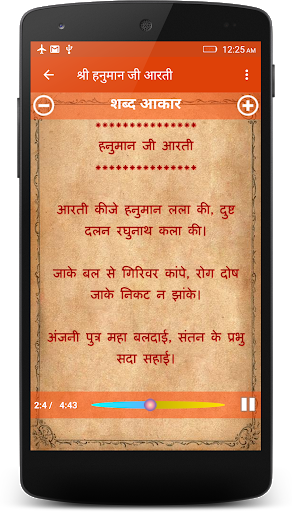 12:25 AM
श्री हनुमान जी आरती
शब्द आकार
***************
हनुमान जी आरती
***************
आरती कीजे हनुमान लला की, दुष्ट
दलन रघुनाथ कला की।
जाके बल से गिरिवर कांपे, रोग दोष
जाके निकट न झांके।
अंजनी पुत्र महा बलदाई, संतन के प्रभु
सदा सहाई।
2:4 / 4:43